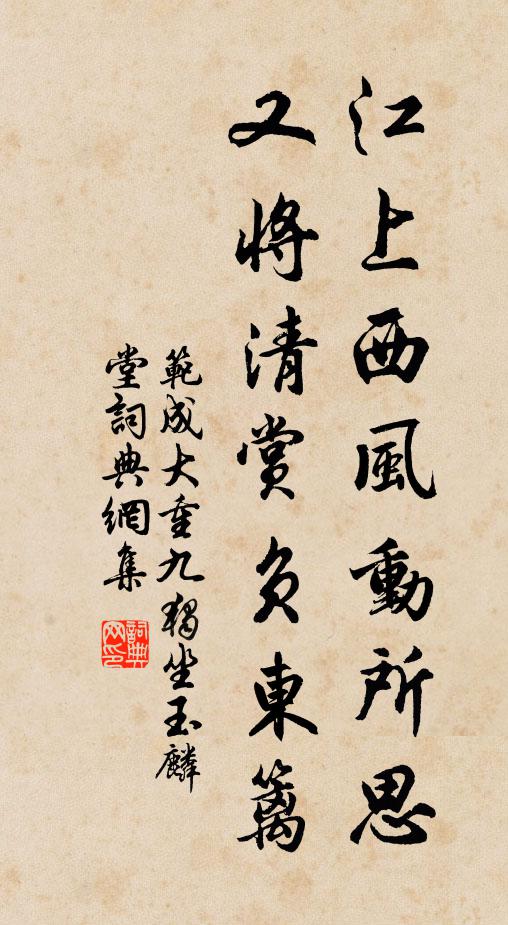 江上西風動所思
又將清賞負東籬
範成大重九獨坐玉麟
堂詞典網集
詞典網印